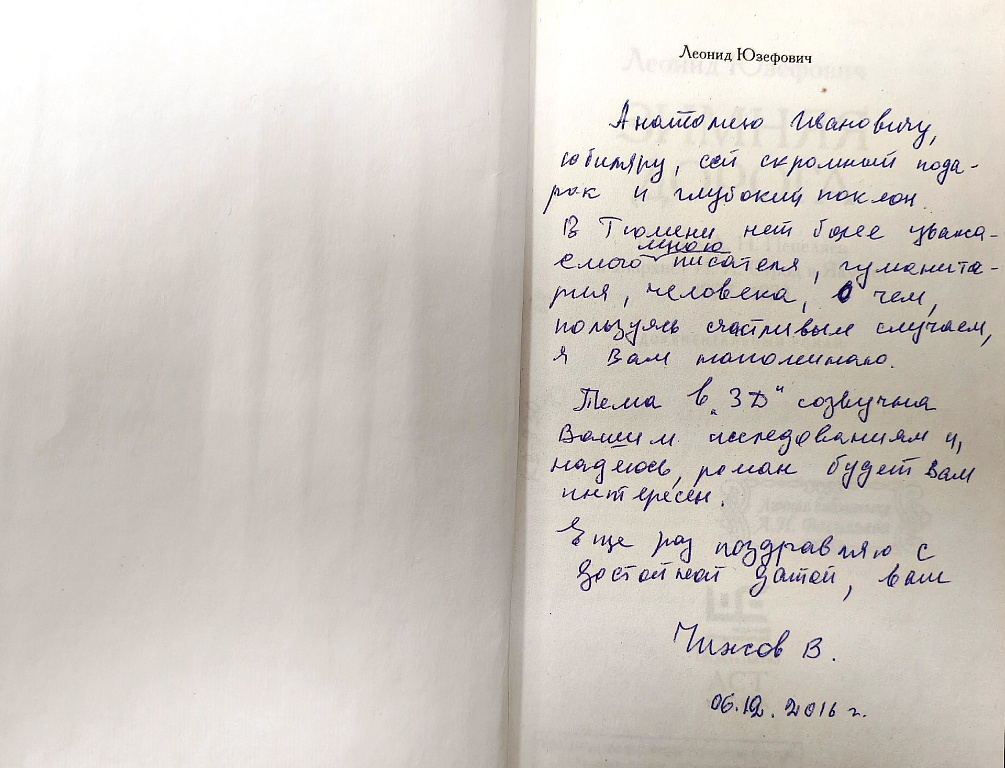 Леонид Юзефович
Анатолию Ивановичу,
юбиляру, сей скромный пода-
рок и глубокий поклон.
В Тюмени нет более уважа-
емого мною писателя, гуманита-
рия, человека, о чем,
пользуясь счастливым случаем,
я Вам напоминаю.
Тема в „ЗД" созвучна
Вашим исследованиям и,
надеюсь, роман будет Вам
интересен.
Еще раз поздравляю с
достойной датой, ваш
Чижов В.
06.12.2016 г.
АСТ